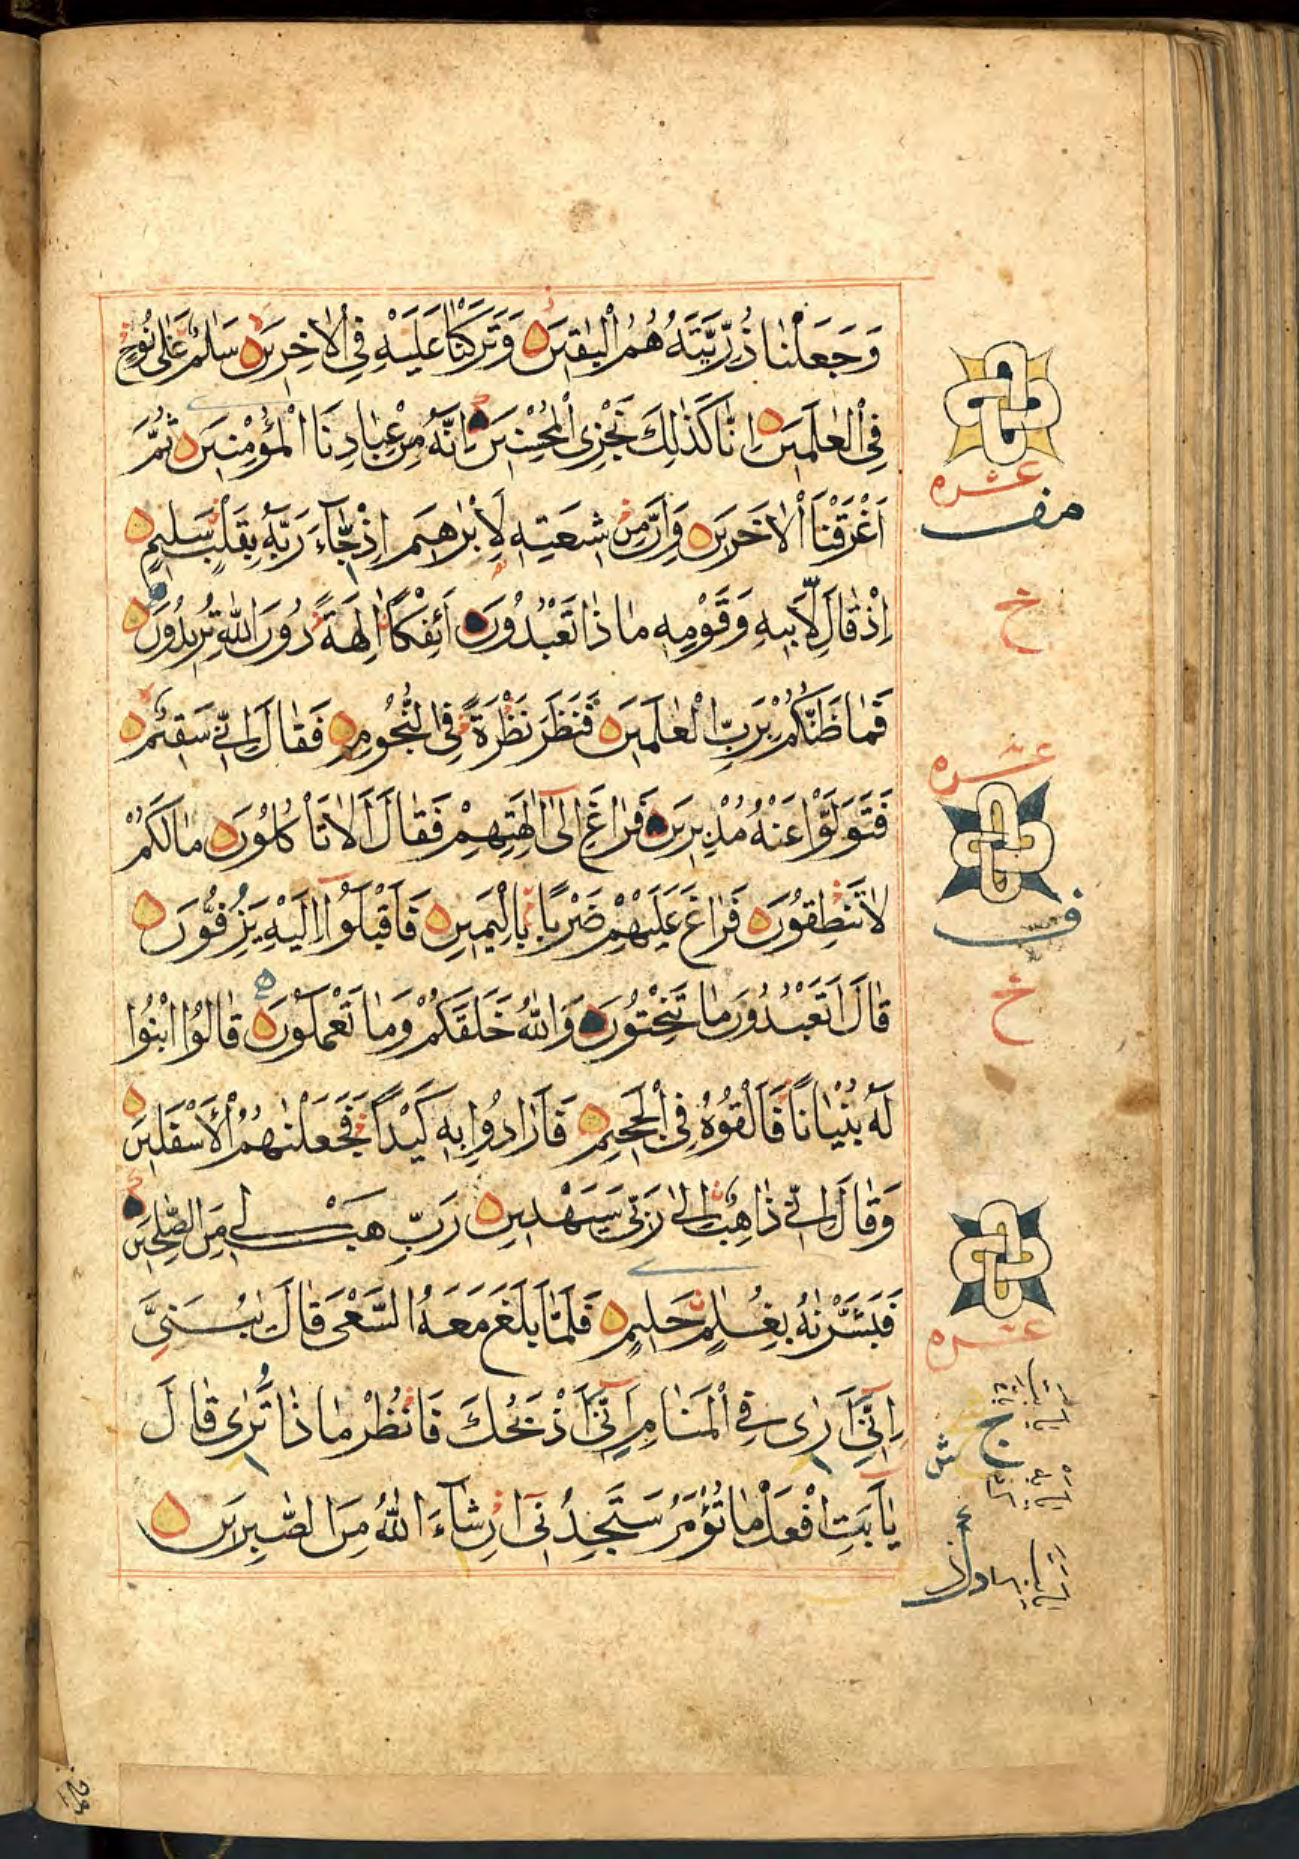 وَجَعَلْنَا ذُرِّيَّتَهُ هُمُ الْبٰقِيْنَ وَتَرَكْنَا عَلَيْهِ فِي الْاٰخِرِيْنَ سَلٰمٌ عَلٰى نُوْحٍ
فِي الْعٰلَمِيْنَ اِنَّا كَذٰلِكَ نَجْزِي الْمُحْسِنِيْنَ اِنَّهٗ مِنْ عِبَادِنَا الْمُؤْمِنِيْنَ ثُمَّ
اَغْرَقْنَا الْاٰخَرِيْنَ وَاِنَّ مِنْ شِيْعَتِهٖ لَاِبْرٰهِيْمَ اِذْ جَآءَ رَبَّهٗ بِقَلْبٍ سَلِيْمٍ
اِذْ قَالَ لِاَبِيْهِ وَقَوْمِهٖ مَاذَا تَعْبُدُوْنَ اَئِفْكًا اٰلِهَةً دُوْنَ اللّٰهِ تُرِيْدُوْنَ
فَمَا ظَنُّكُمْ بِرَبِّ الْعٰلَمِيْنَ فَنَظَرَ نَظْرَةً فِي النُّجُوْمِ فَقَالَ اِنِّيْ سَقِيْمٌ
فَتَوَلَّوْا عَنْهُ مُدْبِرِيْنَ فَرَاغَ اِلٰٓى اٰلِهَتِهِمْ فَقَالَ اَلَا تَاْكُلُوْنَ مَا لَكُمْ
لَا تَنْطِقُوْنَ فَرَاغَ عَلَيْهِمْ ضَرْبًا بِالْيَمِيْنِ فَاَقْبَلُوْٓا اِلَيْهِ يَزِفُّوْنَ
قَالَ اَتَعْبُدُوْنَ مَا تَنْحِتُوْنَ وَاللّٰهُ خَلَقَكُمْ وَمَا تَعْمَلُوْنَ قَالُوا ابْنُوْا
لَهٗ بُنْيَانًا فَاَلْقُوْهُ فِي الْجَحِيْمِ فَاَرَادُوْا بِهٖ كَيْدًا فَجَعَلْنٰهُمُ الْاَسْفَلِيْنَ
وَقَالَ اِنِّيْ ذَاهِبٌ اِلٰى رَبِّيْ سَيَهْدِيْنِ رَبِّ هَبْ لِيْ مِنَ الصّٰلِحِيْنَ
فَبَشَّرْنٰهُ بِغُلٰمٍ حَلِيْمٍ فَلَمَّا بَلَغَ مَعَهُ السَّعْيَ قَالَ يٰبُنَيَّ
اِنِّيْٓ اَرٰى فِي الْمَنَامِ اَنِّيْٓ اَذْبَحُكَ فَانْظُرْ مَاذَا تَرٰى قَالَ
يَآ اَبَتِ افْعَلْ مَا تُؤْمَرُ سَتَجِدُنِيْٓ اِنْ شَآءَ اللّٰهُ مِنَ الصّٰبِرِيْنَ
عشره
ف
خ
عشره
ف
خ
عشره
ج
ش